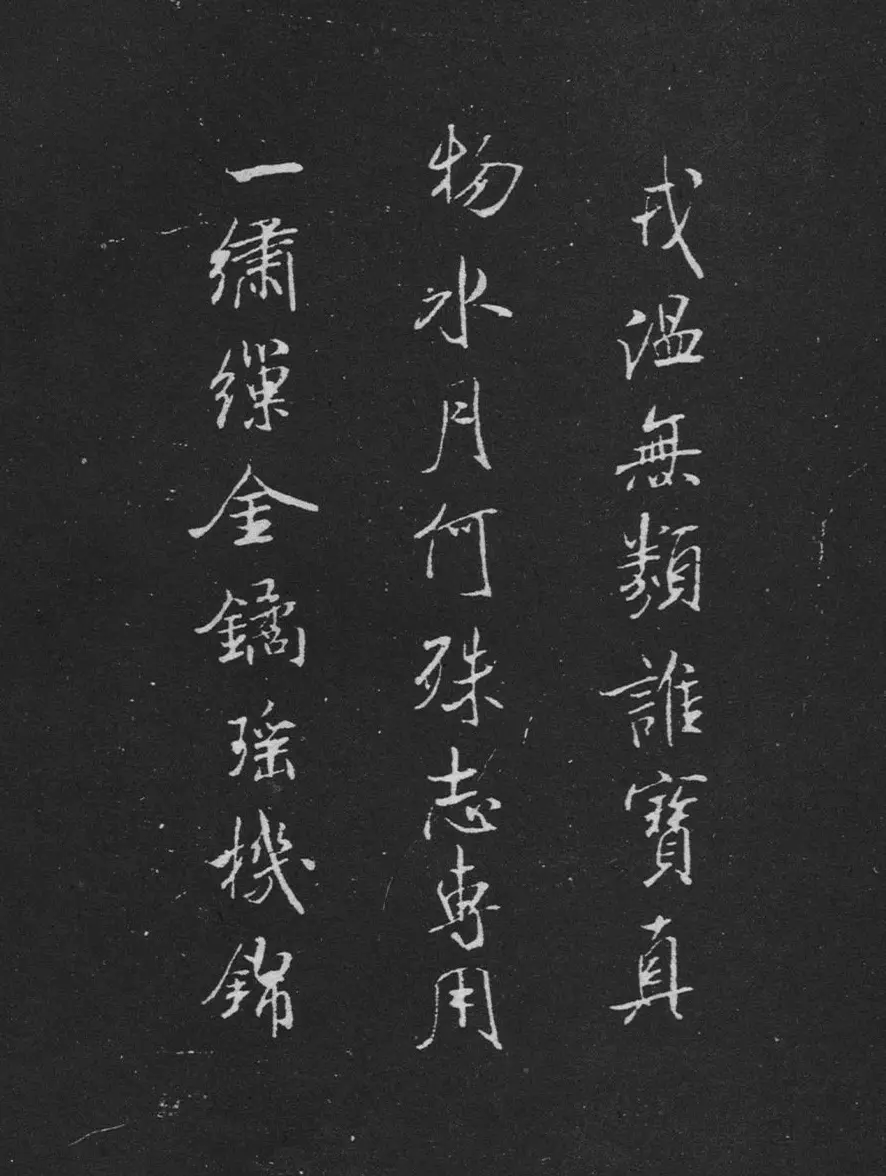 戎温無類誰寶真
物水月何殊志專用
一繡繅金鐍瑶機錦